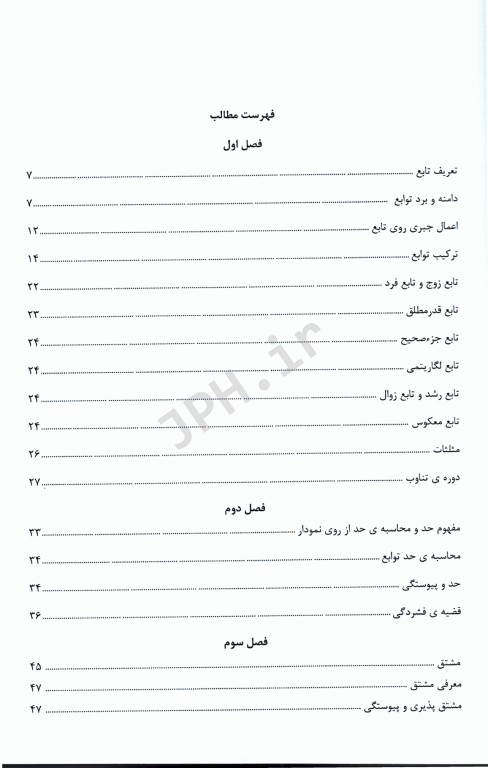 فهرست مطالب
فصل اول
تعریف تابع ........ ۷
دامنه و برد توابع ........ ۷
اعمال جبری روی تابع ........ ۱۲
ترکیب توابع ........ ۱۴
تابع زوج و تابع فرد ........ ۲۲
تابع قدرمطلق ........ ۲۳
تابع جزءصحیح ........ ۲۴
تابع لگاریتمی ........ ۲۴
تابع رشد و تابع زوال ........ ۲۴
تابع معکوس ........ ۲۴
مثلثات ........ ۲۶
دوره ی تناوب ........ ۲۷
فصل دوم
مفهوم حد و محاسبه ی حد از روی نمودار ........ ۳۳
محاسبه ی حد توابع ........ ۳۴
حد و پیوستگی ........ ۳۴
قضیه ی فشردگی ........ ۳۶
فصل سوم
مشتق ........ ۴۵
معرفی مشتق ........ ۴۷
مشتق پذیری و پیوستگی ........ ۴۷
JPH.ir